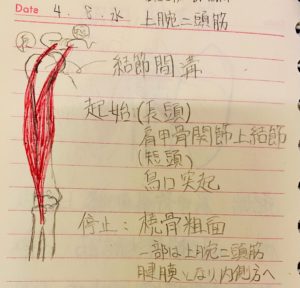 Date 4. 8. 水 上腕二頭筋
結節間溝
起始(長頭)
肩甲骨関節上結節
(短頭)
烏口突起
停止：橈骨粗面
一部は上腕二頭筋
腱膜となり内側方へ